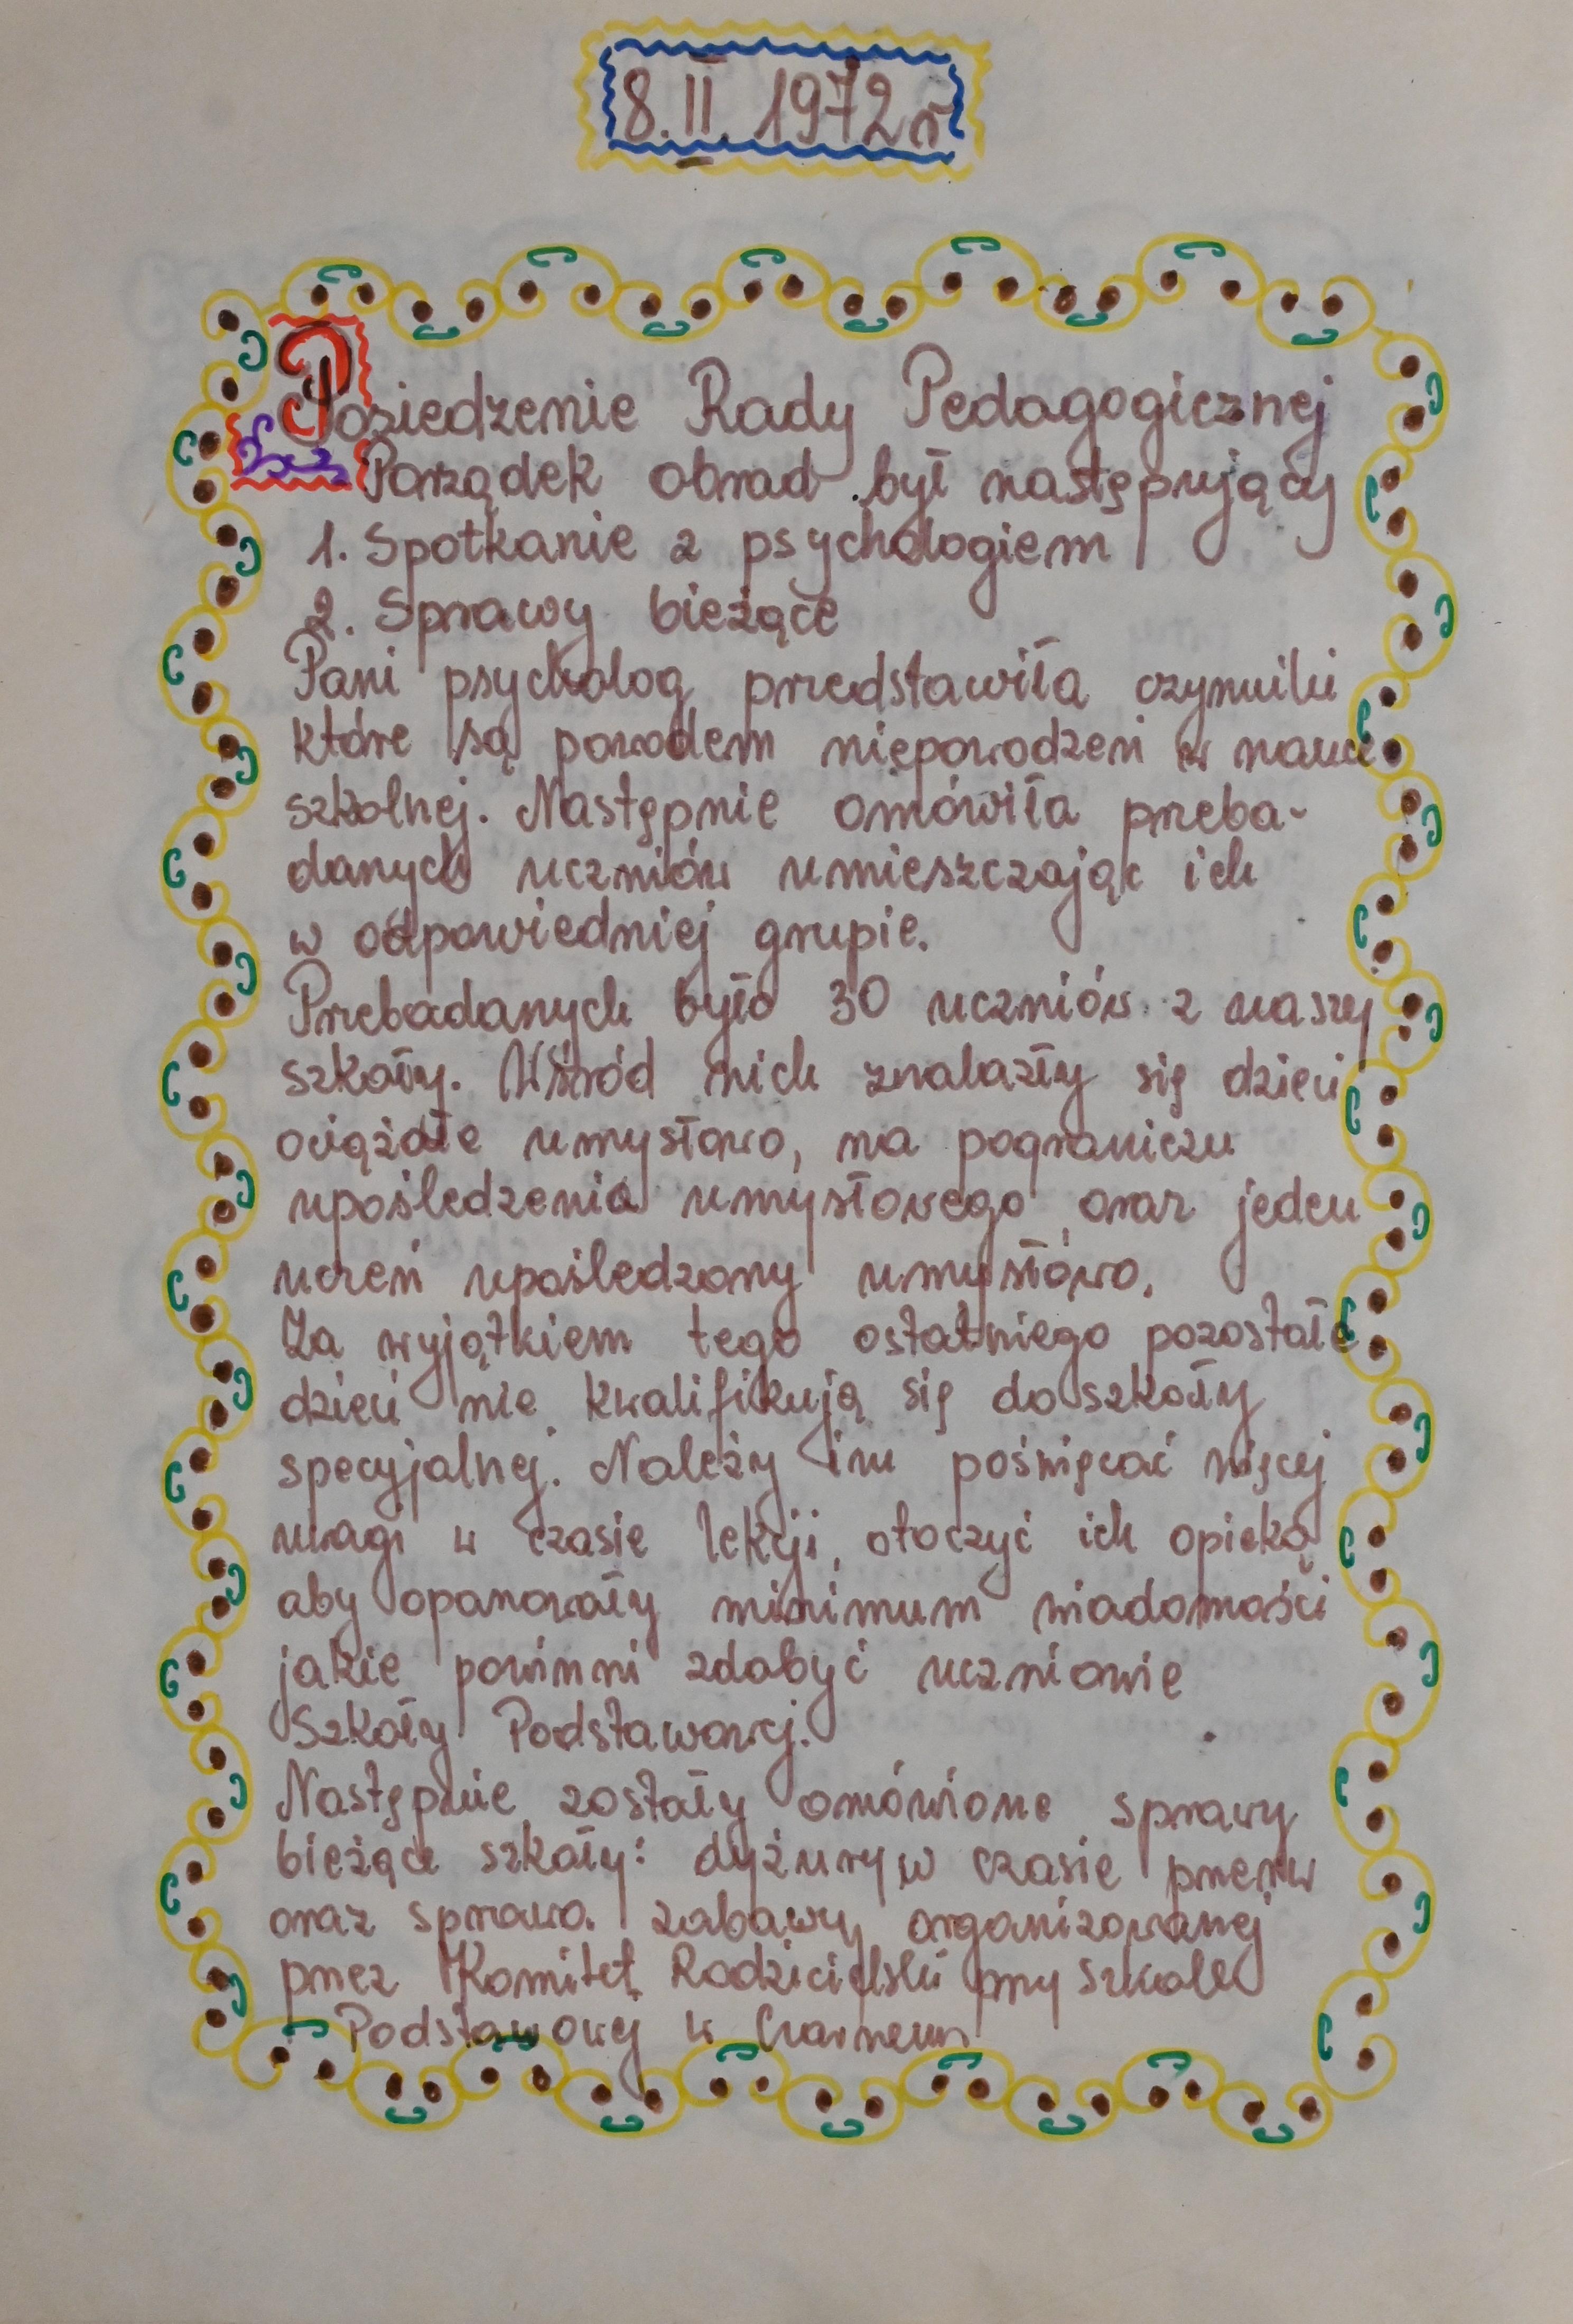 8.II.1972r
Posiedzenie Rady Pedagogicznej
Porządek obrad był następujący
1. Spotkanie z psychologiem
2. Sprawy bieżące
Pani psycholog przedstawiła czynniki
które są powodem niepowodzeń w nauce
szkolnej. Następnie omówiła przeba-
danych uczniów umieszczając ich
w odpowiedniej grupie.
Przebadanych było 30 uczniów z naszej
szkoły. Wśród nich znalazły się dzieci
ociężałe umysłowo, na pograniczu
upośledzenia umysłowego oraz jeden
uczeń upośledzony umysłowo.
Za wyjątkiem tego ostatniego pozostałe
dzieci nie kwalifikują się do szkoły
specyjalnej. Należy im poświęcać więcej
uwagi w czasie lekcji, otoczyć ich opieką
aby opanowały minimum wiadomości
jakie powinni zdobyć uczniowie
Szkoły Podstawowej.
Następnie zostały omówione sprawy
bieżące szkoły: dyżury w czasie przerw
oraz sprawa zabawy organizowanej
przez Komitet Rodzicielski przy szkole
Podstawowej w Czarnem